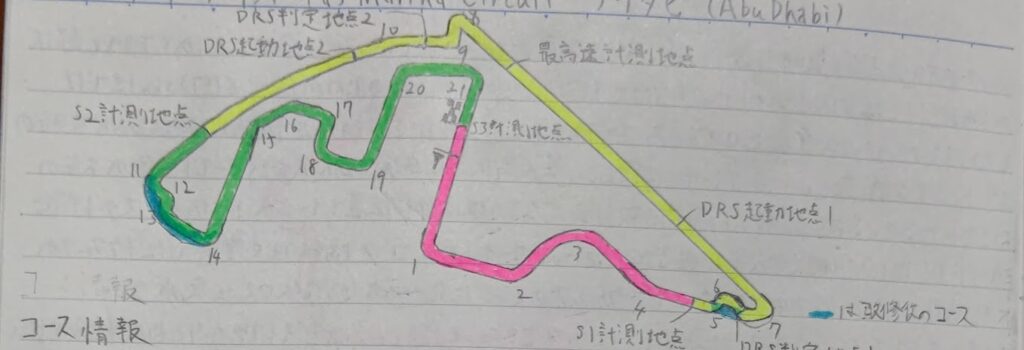 Marina Circuit (AbuDhabi)
DRS判定地点2
DRS起動地点2
10
8
9
最高速計測地点
S2計測地点
20
21
S3計測地点
17
16
15
18
19
11
12
13
14
DRS起動地点1
1
2
3
4
5
6
7
S1計測地点
は改修後のコース
DRS判定
コース情報